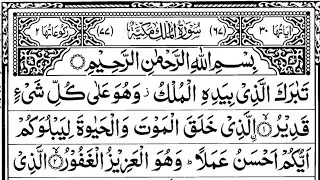 اٰيَاتُهَا ٣٠ (٦٧) سُوْرَةُ الْمُلْكِ مَكِّيَّةٌ (٧٧) رُكُوْعَاتُهَا ٢
بِسْمِ اللّٰهِ الرَّحْمٰنِ الرَّحِيْمِ
تَبٰرَكَ الَّذِيْ بِيَدِهِ الْمُلْكُ ز وَهُوَ عَلٰى كُلِّ شَيْءٍ
قَدِيْرُ ۙ﴿١﴾ الَّذِيْ خَلَقَ الْمَوْتَ وَالْحَيٰوةَ لِيَبْلُوَكُمْ
اَيُّكُمْ اَحْسَنُ عَمَلًا ؕ وَهُوَ الْعَزِيْزُ الْغَفُوْرُ ۙ﴿٢﴾ الَّذِيْ